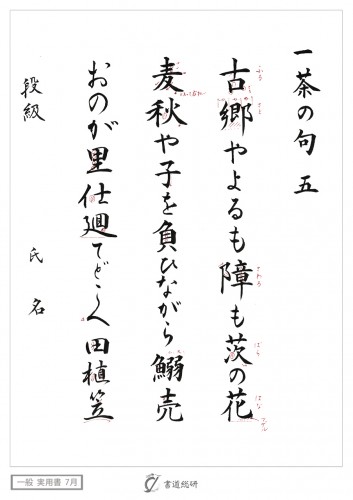 一茶の句 五
古郷やよるも障も茨の花
麦秋や子を負ひながら鰯売
おのが里仕廻てどこへ田植笠
段級 氏名
一般 実用書 7月
書道総研